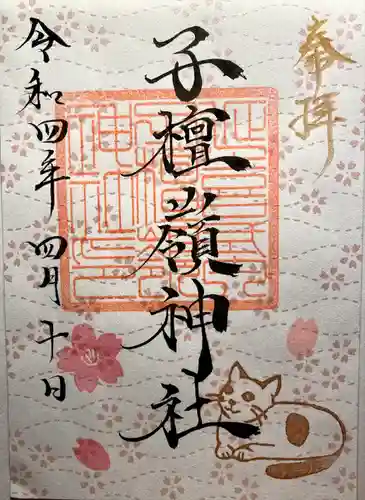 奉拝
子檀嶺神社
令和四年 四月十日